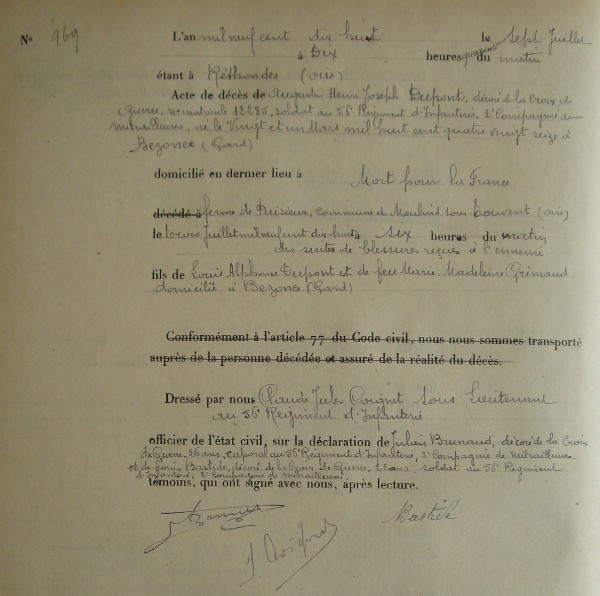 No 969
L'an mil neuf cent dix huit le sept Juillet
à Dix heures quarante du matin
étant à Réthondes (oise)
Acte de décès de Augustin Henri Joseph Dupont, décoré de la Croix de
Guerre, no matricule 12885, soldat au 56e Régiment d'Infanterie, 2e Compagnie de
mitrailleuses, né le Vingt et un Mars mil huit cent quatre vingt seize à
Bezonce (Gard)
domicilié en dernier lieu à Mort pour la France
décédé à ferme de Puisieux, Commune de Moulins sous Touvent (oise)
le trois Juillet mil neuf cent dix huit à six heures du matin
des suites de blessures reçues à l'ennemi
fils de Louis Alphonse Dupont et de feu Marie-Madeleine Grimaud
domiciliés à Bezonce (Gard)
Conformément à l'article 77 du Code civil, nous nous sommes transporté
auprès de la personne décédée et assuré de la réalité du décès.
Dressé par nous Claude Jules Coignet Sous Lieutenant
au 56e Régiment d'Infanterie
officier de l'état civil, sur la déclaration de Julien Brunaud, décoré de la Croix
de Guerre, 26 ans, caporal au 56e Régiment d'Infanterie, 2e Compagnie de Mitrailleuses
et de Louis Bastide, décoré de la Croix de Guerre, 22 ans, soldat au 56e Régiment
d'Infanterie, 2e Compagnie de mitrailleuses
témoins, qui ont signé avec nous, après lecture.
Bastide